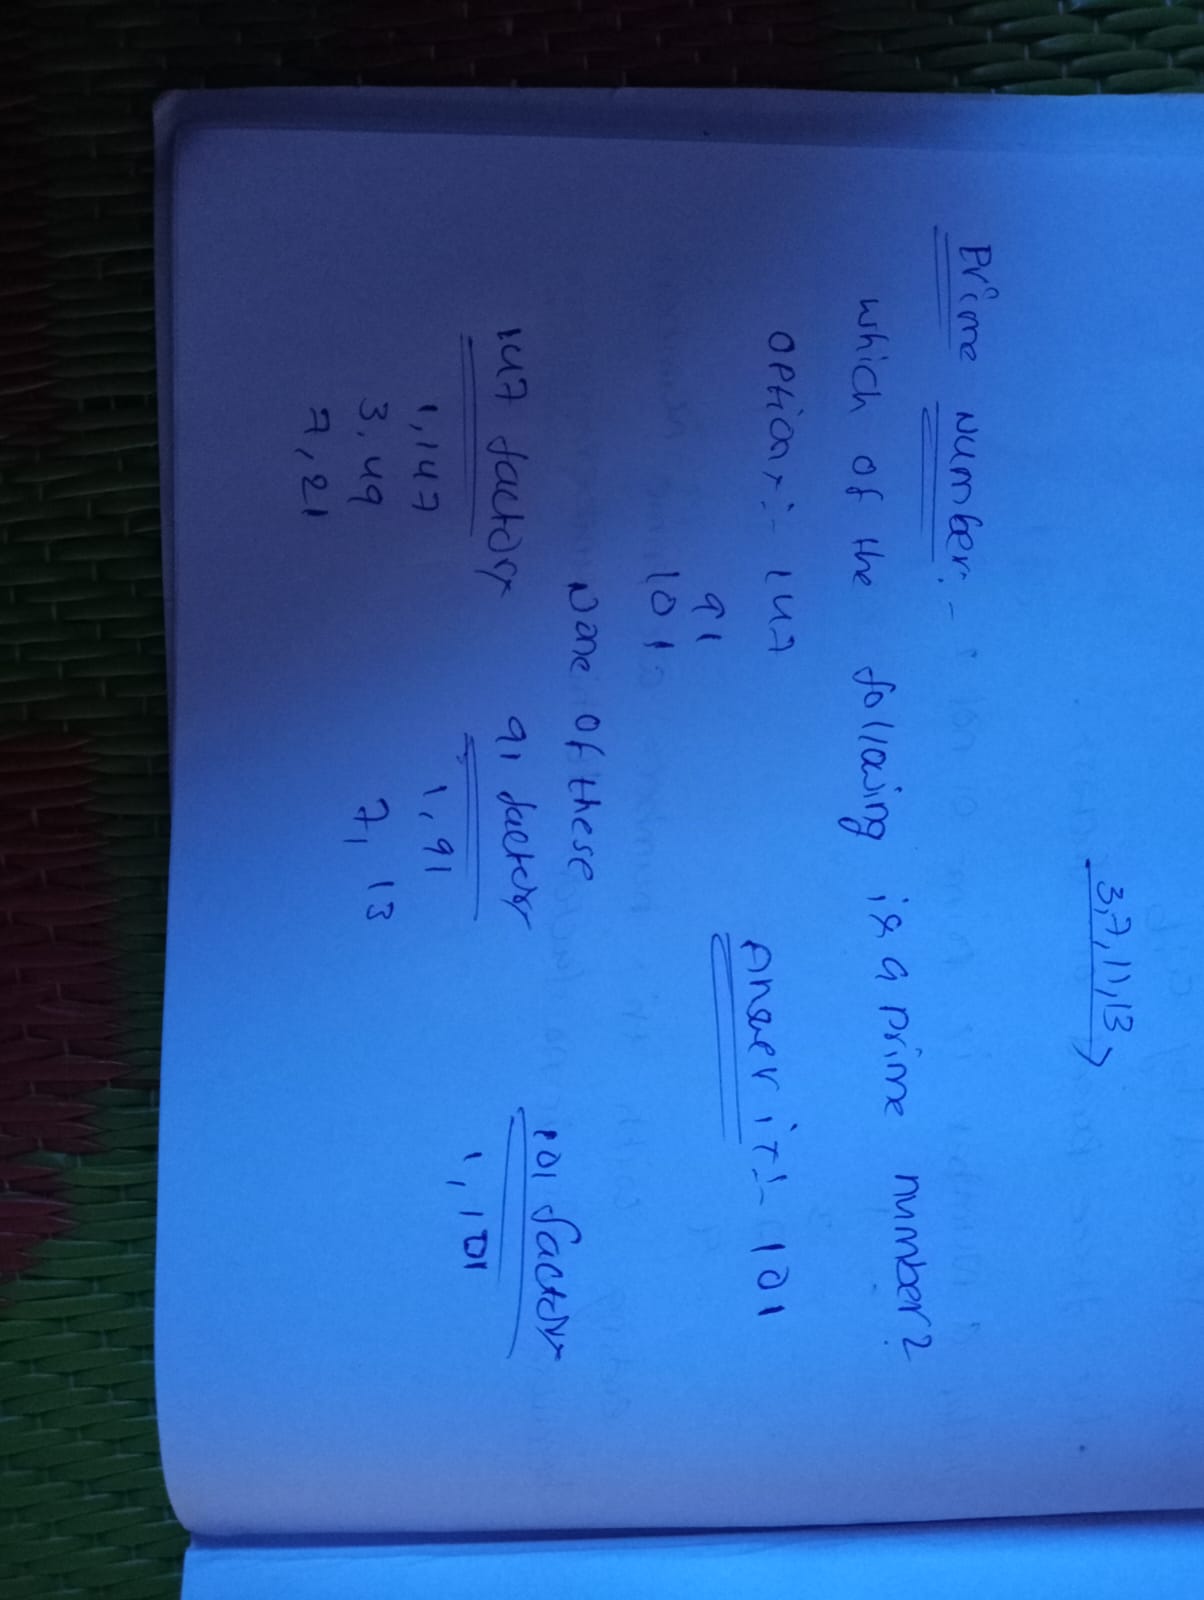 3,7,11,13
Prime Number:-
which of the following is a prime number?
option:- 147
91
101
None of these
Answer is:- 101
147 factors
1,147
3,49
7,21
91 factors
1,91
7,13
101 factors
1,101